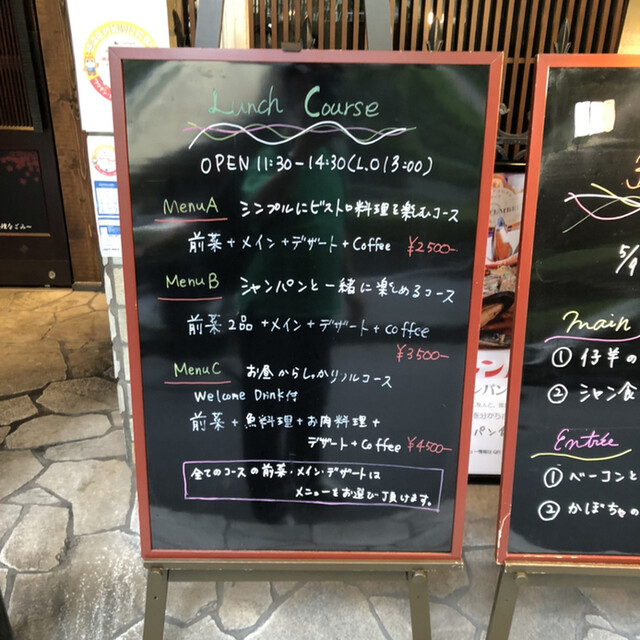 Lunch Course
OPEN 11:30-14:30(L.O 13:00)
Menu A シンプルにビストロ料理を楽しむコース
前菜+メイン+デザート+Coffee ¥2500-
Menu B シャンパンと一緒に楽しめるコース
前菜2品+メイン+デザート+coffee
¥3500-
Menu C お昼からしっかりフルコース
Welcome Drink付
前菜+魚料理+お肉料理+
デザート+Coffee ¥4500-
全てのコースの前菜・メイン・デザートは
メニューをお選び頂けます。
5/
main
① 仔羊の
② シャン食
Entrée
① ベーコンと
② かぼちゃの